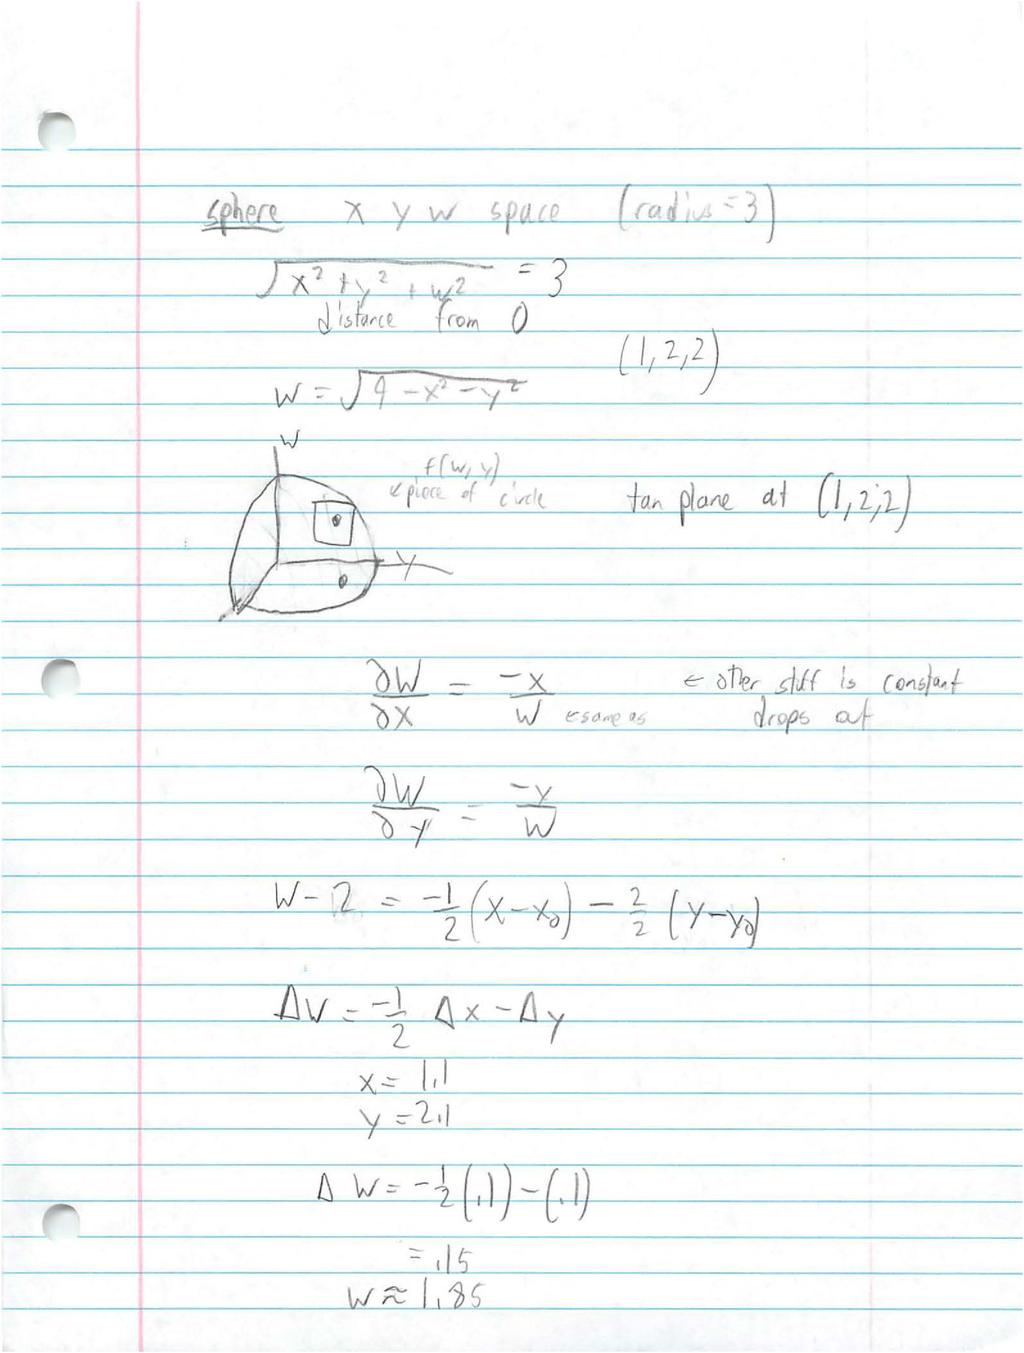 sphere x y w space (radius = 3)
√(x² + y² + w²) = 3
distance from 0
(1, 2, 2)
w = √(9 - x² - y²)
W
f(w, y)
← piece of circle
tan plane at (1, 2, 2)
y
∂W/∂X = -x/W ← same as
← other stuff is constant
drops out
∂W/∂y = -y/W
W - 2 = -1/2 (x - x₀) - 2/2 (y - y₀)
ΔW = -1/2 Δx - Δy
x = 1.1
y = 2.1
Δ W = -1/2 (.1) - (.1)
= .15
W ≈ 1.85